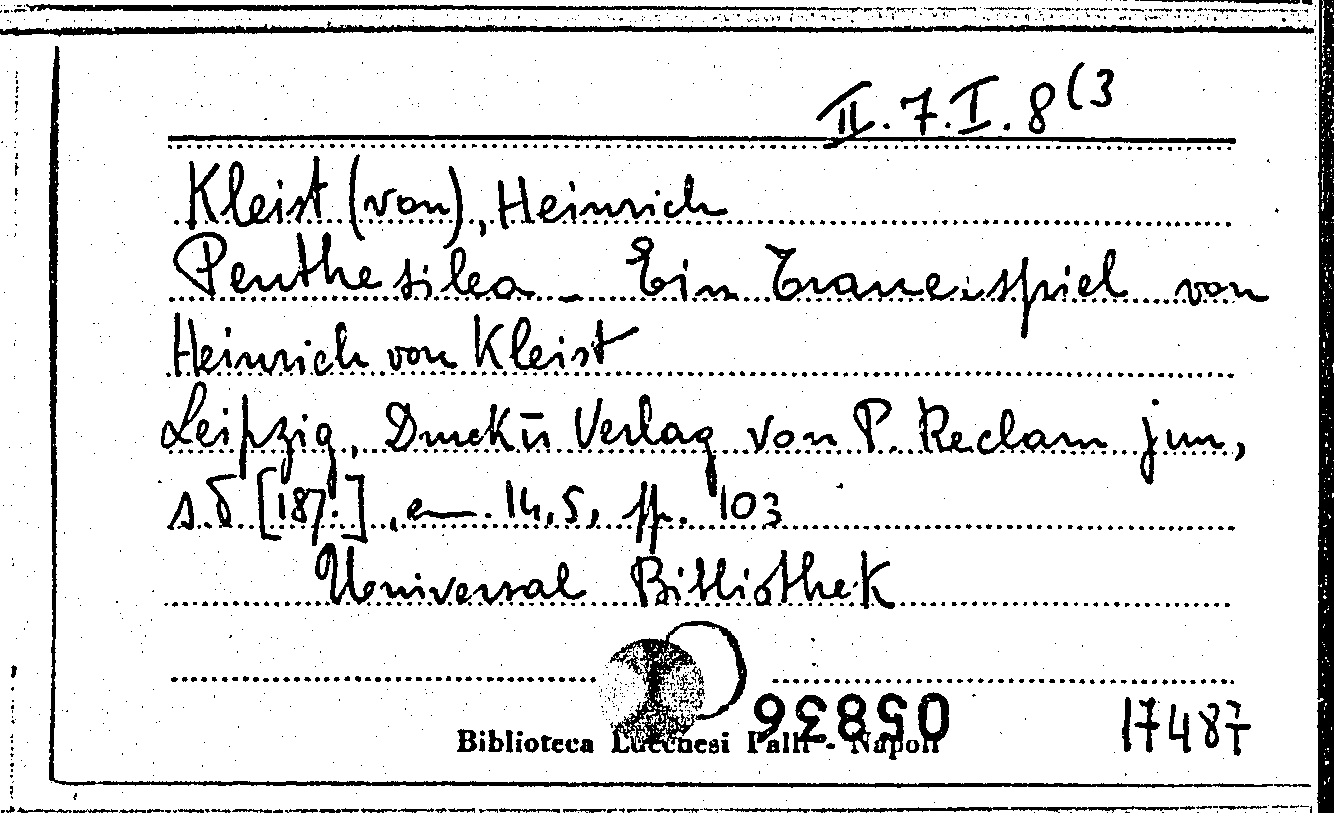 II.7.I.8(3
Kleist (von), Heinrich
Penthesilea - Ein Trauerspiel von
Heinrich von Kleist
Leipzig, Druck ū Verlag von P. Reclam jun,
s.d [187.], cm. 14,5, pp. 103
Universal Bibliothek
05836
17487
Biblioteca Lucchesi Palli - Napoli